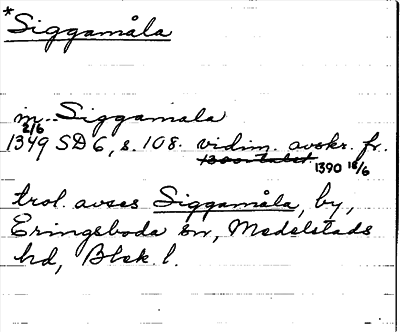 *Siggamåla
in Siggamala
2/6
1349 SD 6, s. 108. vidim. avskr. fr.
1300-talet. 1390 18/6
trol. avses Siggamåla, by,
Eringsboda sn, Medelstads
hd, Blek. l.